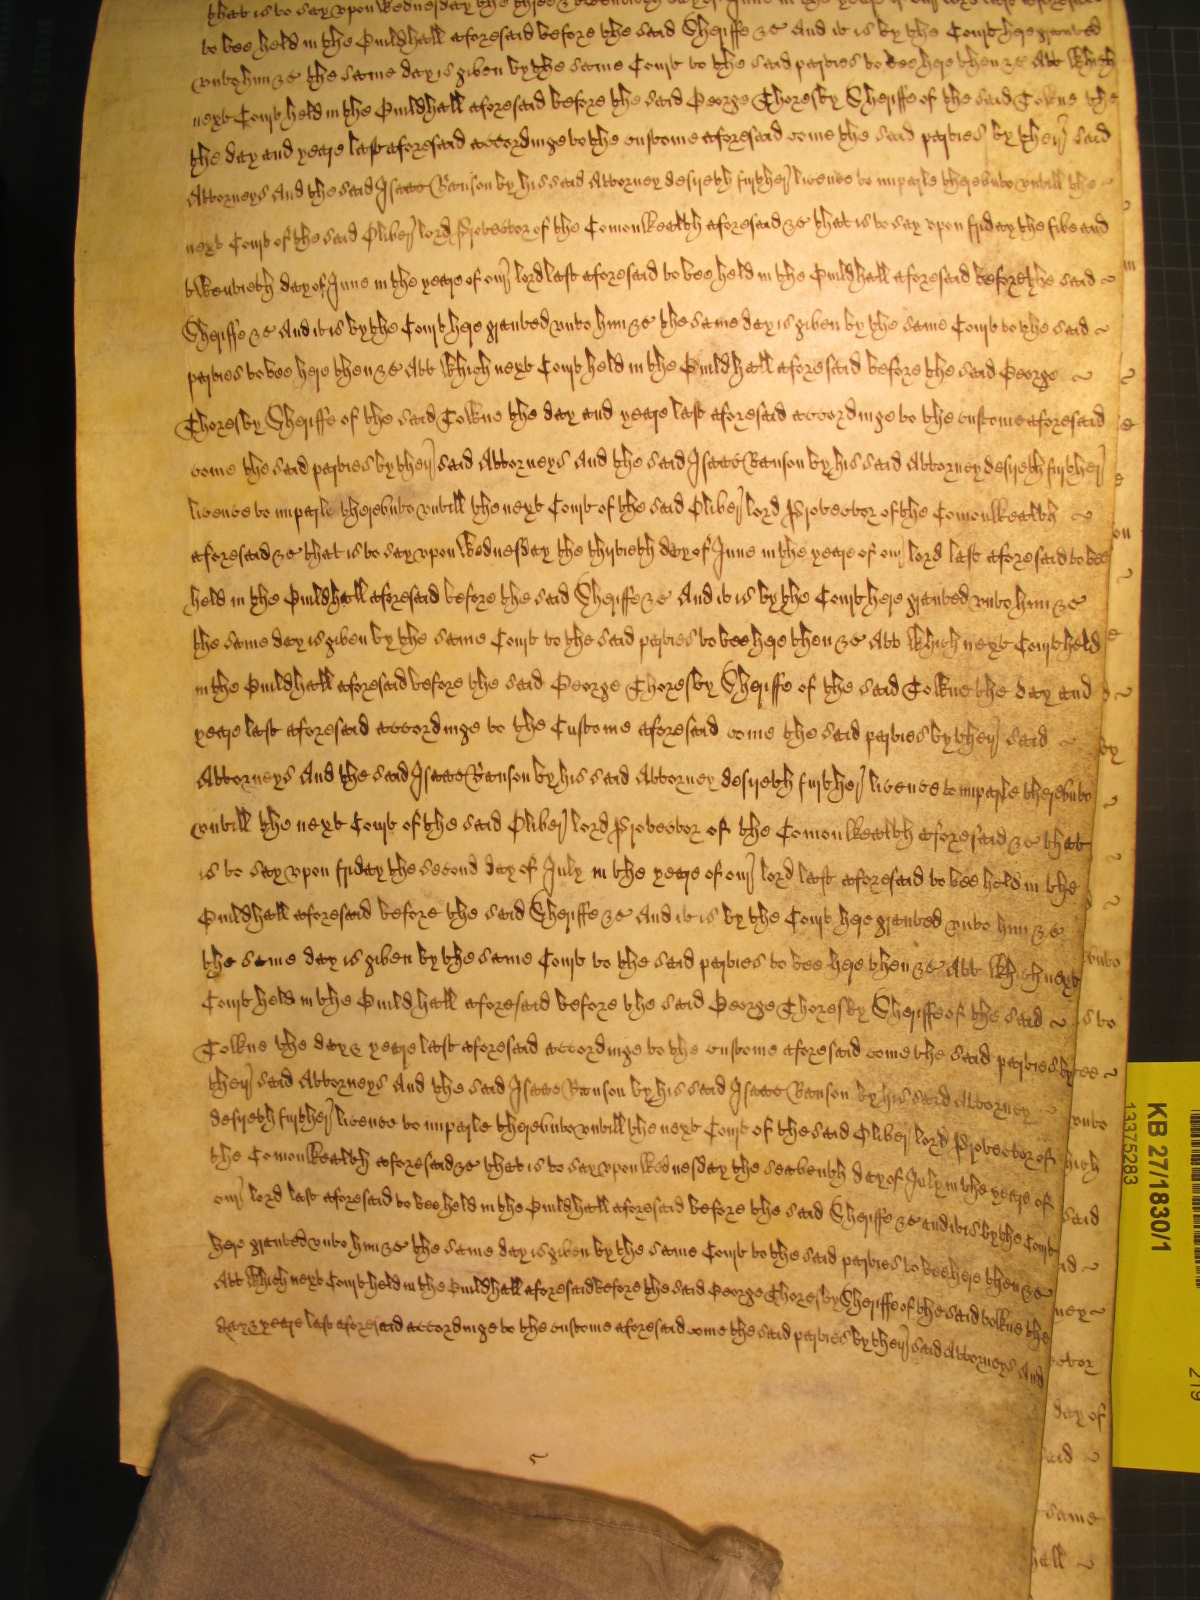 that is to say upon Wednesday the three & twentieth day of June in the yeare of our lord last aforesaid
to bee held in the Guildhall aforesaid before the said Sheriffe &c And it is by the Court here graunted
unto him &c the same day is given by the same Court to the said parties to bee here then &c Att which
next Court held in the Guildhall aforesaid before the said George Thoresby Sheriffe of the said Towne the
the day and yeare last aforesaid accordinge to the custome aforesaid come the said parties by their said
Attorneys And the said Isaac Ranson by his said Attorney desireth further licence to imparle thereunto untill the
next Court of the said Oliver lord Protector of the Comonwealth aforesaid &c that is to say upon friday the five and
twentieth day of June in the yeare of our lord last aforesaid to bee held in the Guildhall aforesaid before the said
Sheriffe &c And it is by the Court here graunted unto him &c the same day is given by the same Court to the said
parties to bee here then &c Att which next Court held in the Guildhall aforesaid before the said George
Thoresby Sheriffe of the said Towne the day and yeare last aforesaid accordinge to the custome aforesaid
come the said parties by their said Attorneys And the said Isaac Ranson by his said Attorney desireth further
licence to imparle thereunto untill the next Court of the said Oliver lord Protector of the Comonwealth
aforesaid &c that is to say upon Wednesday the thirtieth day of June in the yeare of our lord last aforesaid to bee
held in the Guildhall aforesaid before the said Sheriffe &c And it is by the Court here graunted unto him &c
the same day is given by the same Court to the said parties to bee here then &c Att which next Court held
in the Guildhall aforesaid before the said George Thoresby Sheriffe of the said Towne the day and
yeare last aforesaid accordinge to the Custome aforesaid come the said parties by their said
Attorneys And the said Isaac Ranson by his said Attorney desireth further licence to imparle thereunto
untill the next Court of the said Oliver lord Protector of the Comonwealth aforesaid &c that
is to say upon friday the second day of July in the yeare of our lord last aforesaid to bee held in the
Guildhall aforesaid before the said Sheriffe &c And it is by the Court here graunted unto him &c
the same day is given by the same Court to the said parties to bee here then &c Att which next
Court held in the Guildhall aforesaid before the said George Thoresby Sheriffe of the said
Towne the day & yeare last aforesaid accordinge to the custome aforesaid come the said parties by
their said Attorneys And the said Isaac Ranson by his said Isaac Ranson by his said Attorney
desireth further licence to imparle thereunto untill the next Court of the said Oliver lord Protector of
the Comonwealth aforesaid &c that is to say upon Wednesday the seaventh day of July in the yeare of
our lord last aforesaid to bee held in the Guildhall aforesaid before the said Sheriffe &c and it is by the Court
here graunted unto him &c the same day is given by the same Court to the said parties to bee here then &c
Att which next Court held in the Guildhall aforesaid before the said George Thoresby Sheriffe of the said towne the
day & yeare last aforesaid accordinge to the custome aforesaid come the said parties by their said Attorneys And
KB 27/1830/1
13375283
219